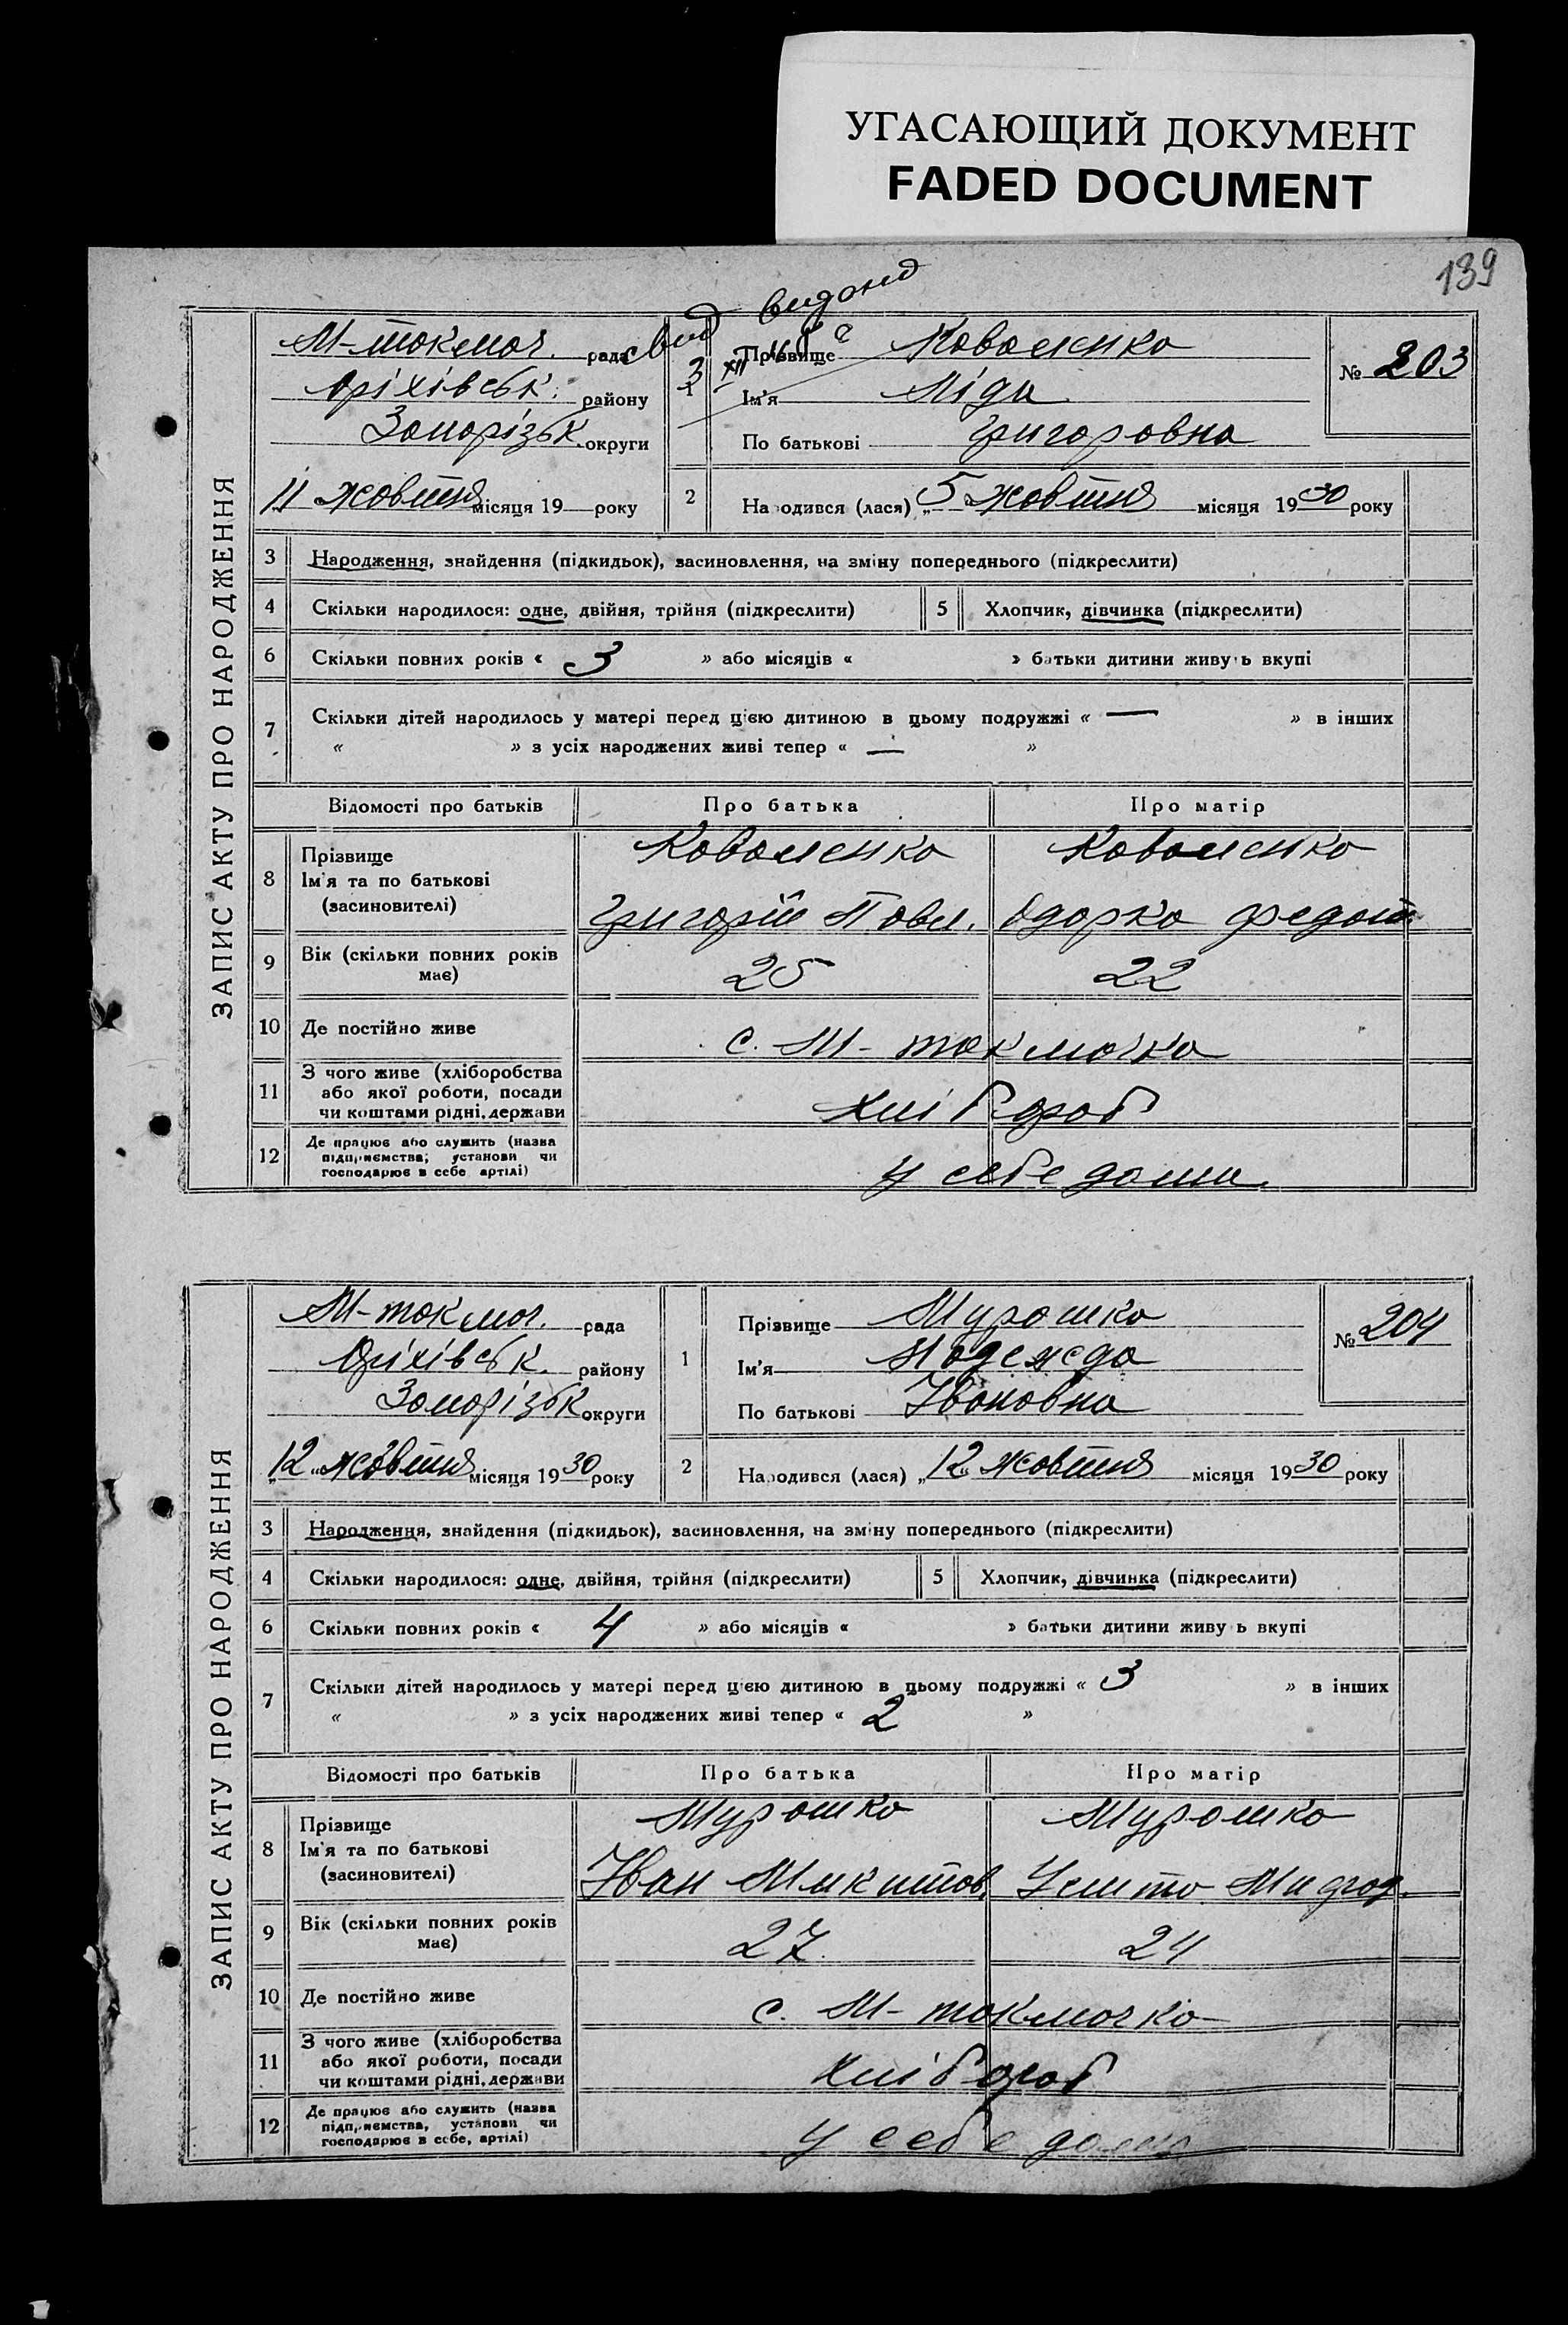 УГАСАЮЩИЙ ДОКУМЕНТ
FADED DOCUMENT
139
видано
ЗАПИС АКТУ ПРО НАРОДЖЕННЯ
М-токмач. рада
Оріхівськ. району
Запорізьк. округи
11 жовтня місяця 19 року
1 Прізвище Коваленко
Ім'я Ліда
По батькові Григоровна
№ 203
2 Народився (лася) „5" жовтня місяця 1930 року
3 Народження, знайдення (підкидьок), засиновлення, на зміну попереднього (підкреслити)
4 Скільки народилося: одне, двійня, трійня (підкреслити) 5 Хлопчик, дівчинка (підкреслити)
6 Скільки повних років « 3 » або місяців « » батьки дитини живуть вкупі
7 Скільки дітей народилось у матері перед цією дитиною в цьому подружжі « — » в інших
« » з усіх народжених живі тепер « — »
Відомості про батьків Про батька Про матір
8 Прізвище Коваленко Коваленко
Ім'я та по батькові
(засиновителі) Григорій Павл. Одарка Федот.
9 Вік (скільки повних років має) 25 22
10 Де постійно живе с. М-токмачка
11 З чого живе (хліборобства
або якої роботи, посади
чи коштами рідні, держави хлібороб
12 Де працює або служить (назва
підприємства; установи чи
господарює в себе артілі) у себе дома
ЗАПИС АКТУ ПРО НАРОДЖЕННЯ
М-токмач. рада
Оріхівськ. району
Запорізьк округи
„12" жовтня місяця 1930 року
1 Прізвище Мурашко
Ім'я Надежда
По батькові Івановна
№ 204
2 Народився (лася) „12" жовтня місяця 1930 року
3 Народження, знайдення (підкидьок), засиновлення, на зміну попереднього (підкреслити)
4 Скільки народилося: одне, двійня, трійня (підкреслити) 5 Хлопчик, дівчинка (підкреслити)
6 Скільки повних років « 4 » або місяців « » батьки дитини живуть вкупі
7 Скільки дітей народилось у матері перед цією дитиною в цьому подружжі « 3 » в інших
« » з усіх народжених живі тепер « 2 »
Відомості про батьків Про батька Про матір
8 Прізвище Мурашко Мурашко
Ім'я та по батькові
(засиновителі) Іван Микитов.
9 Вік (скільки повних років має) 27 24
10 Де постійно живе с. М-токмачка
11 З чого живе (хліборобства
або якої роботи, посади
чи коштами рідні, держави хлібороб
12 Де працює або служить (назва
підприємства, установи чи
господарює в себе, артілі) у себе дома